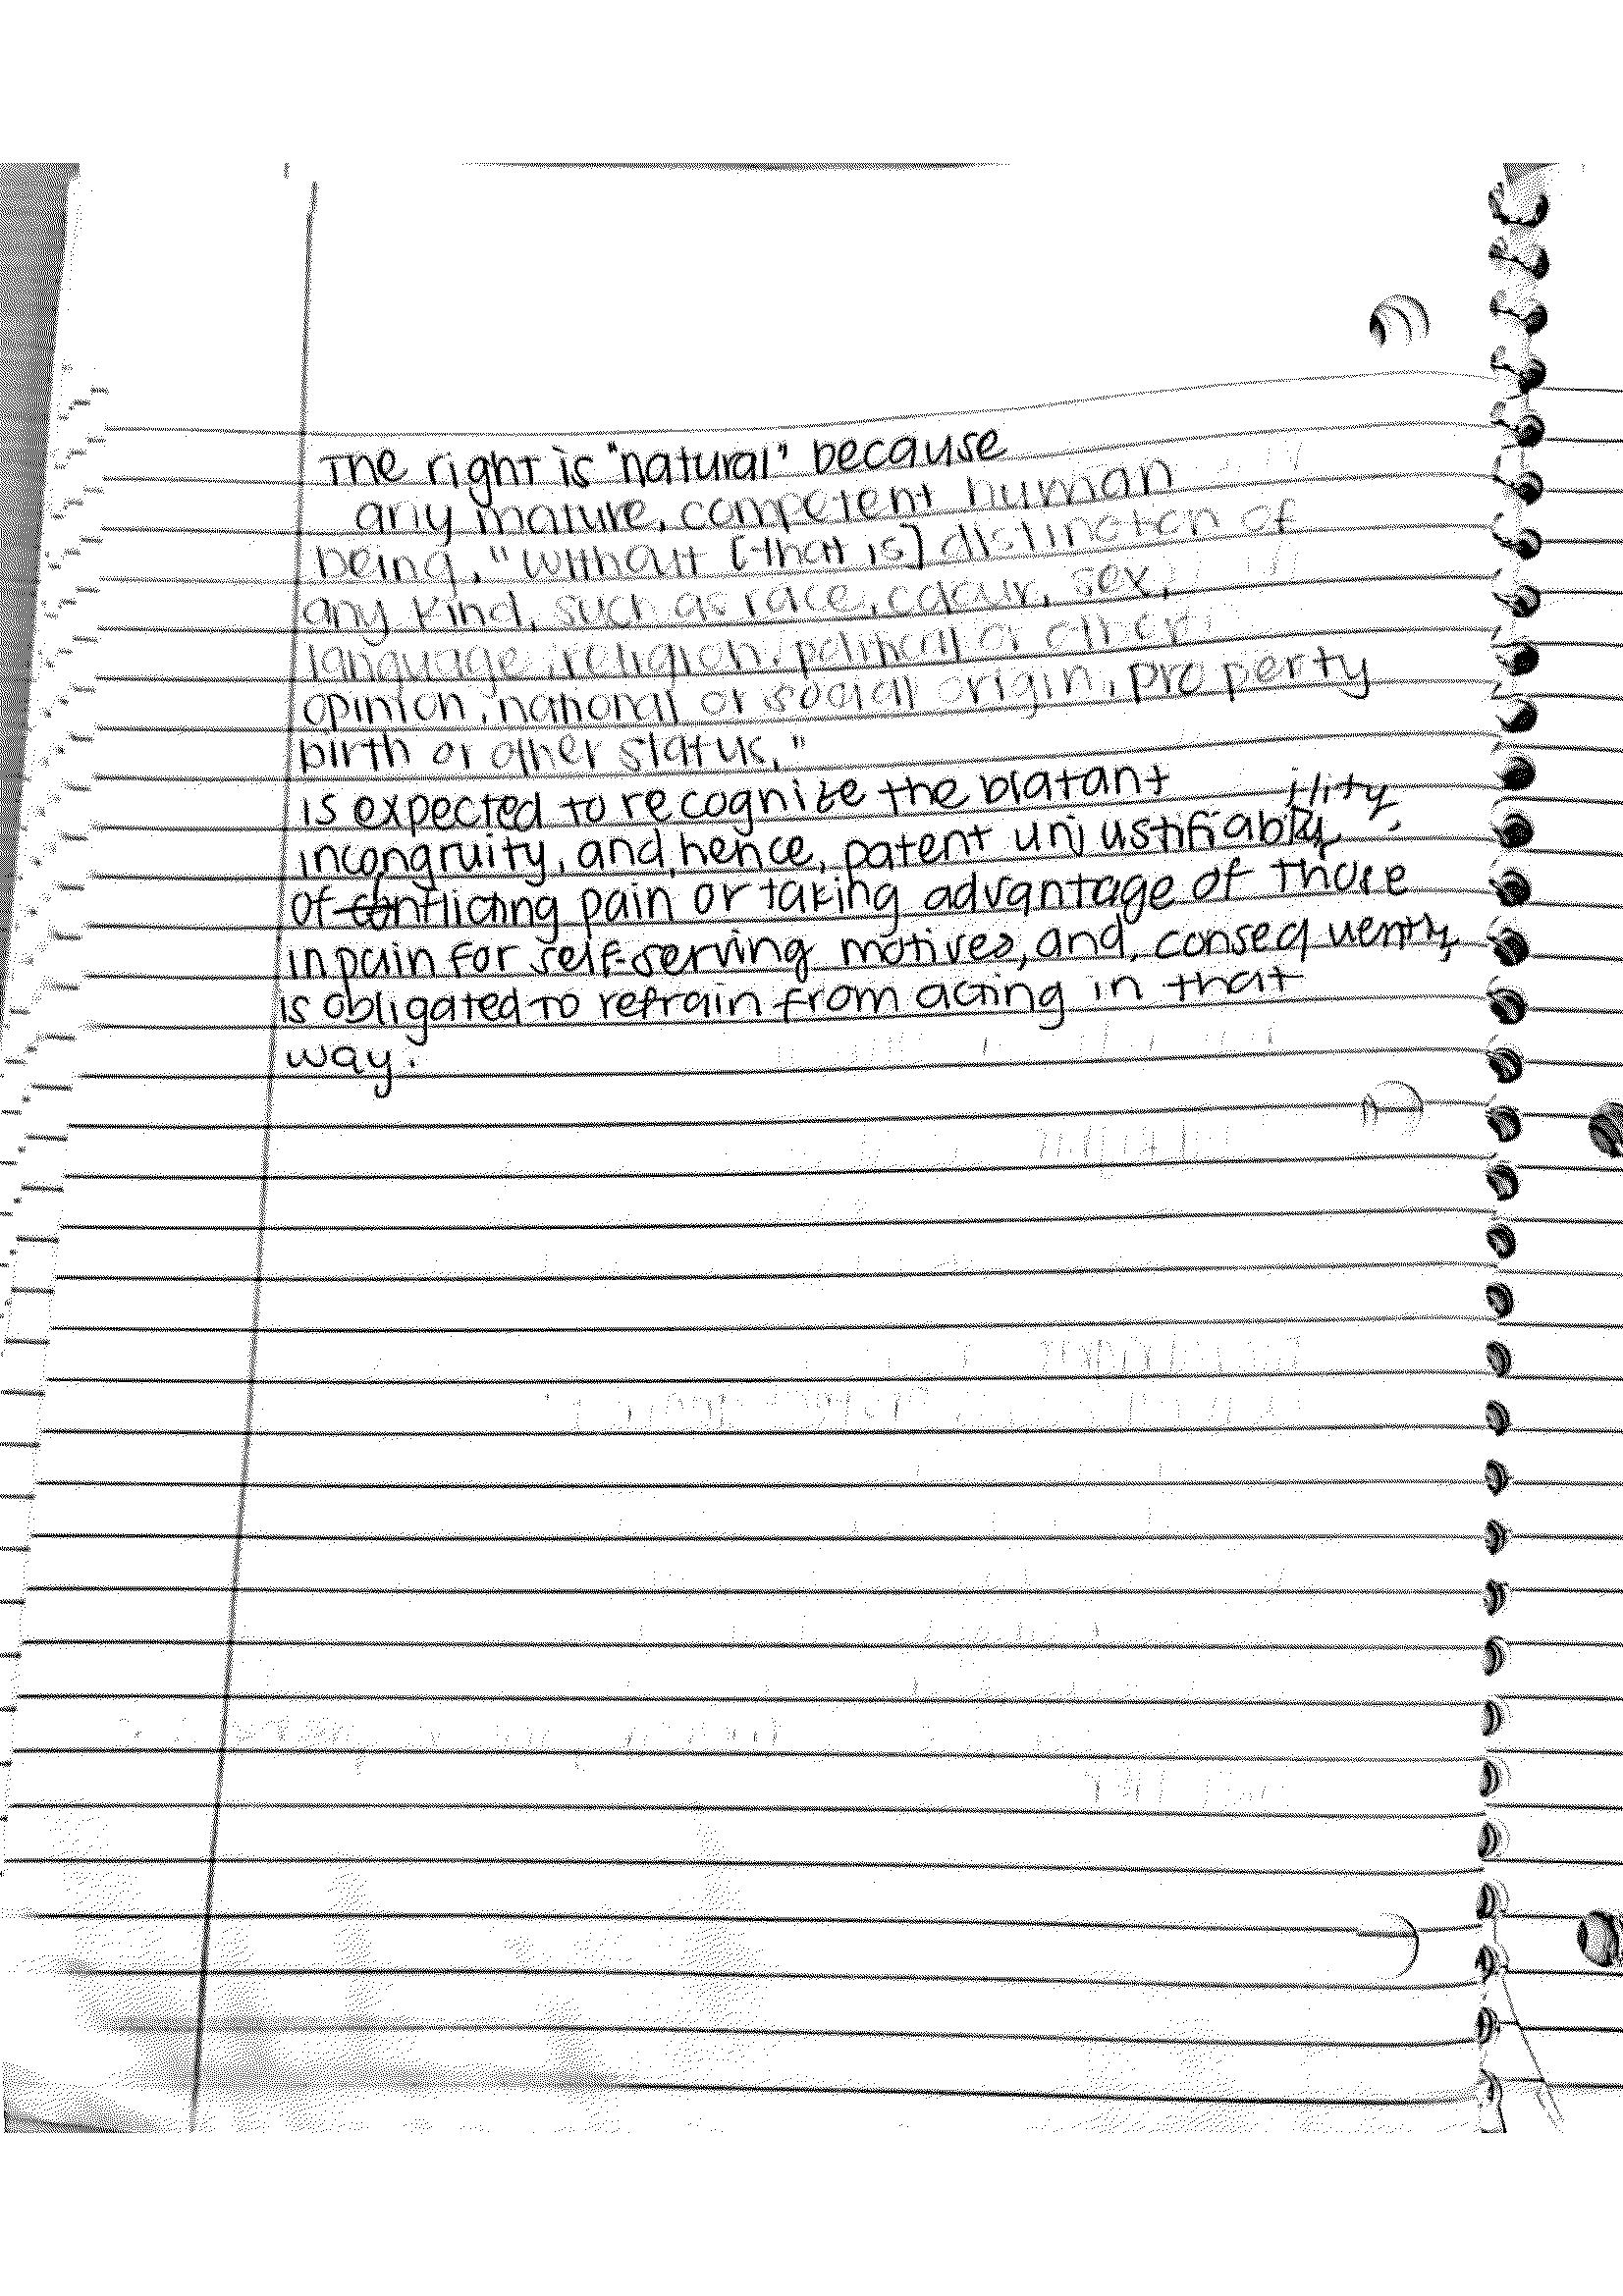 The right is "natural" because
any mature, competent human
being, "without [that is] distinction of
any kind, such as race, colour, sex,
language, religion, political or other
opinion, national or social origin, property
birth or other status,"
is expected to recognize the blatant
incongruity, and, hence, patent unjustifiability,
of inflicting pain or taking advantage of those
in pain for self-serving motives, and, consequently,
is obligated to refrain from acting in that
way.